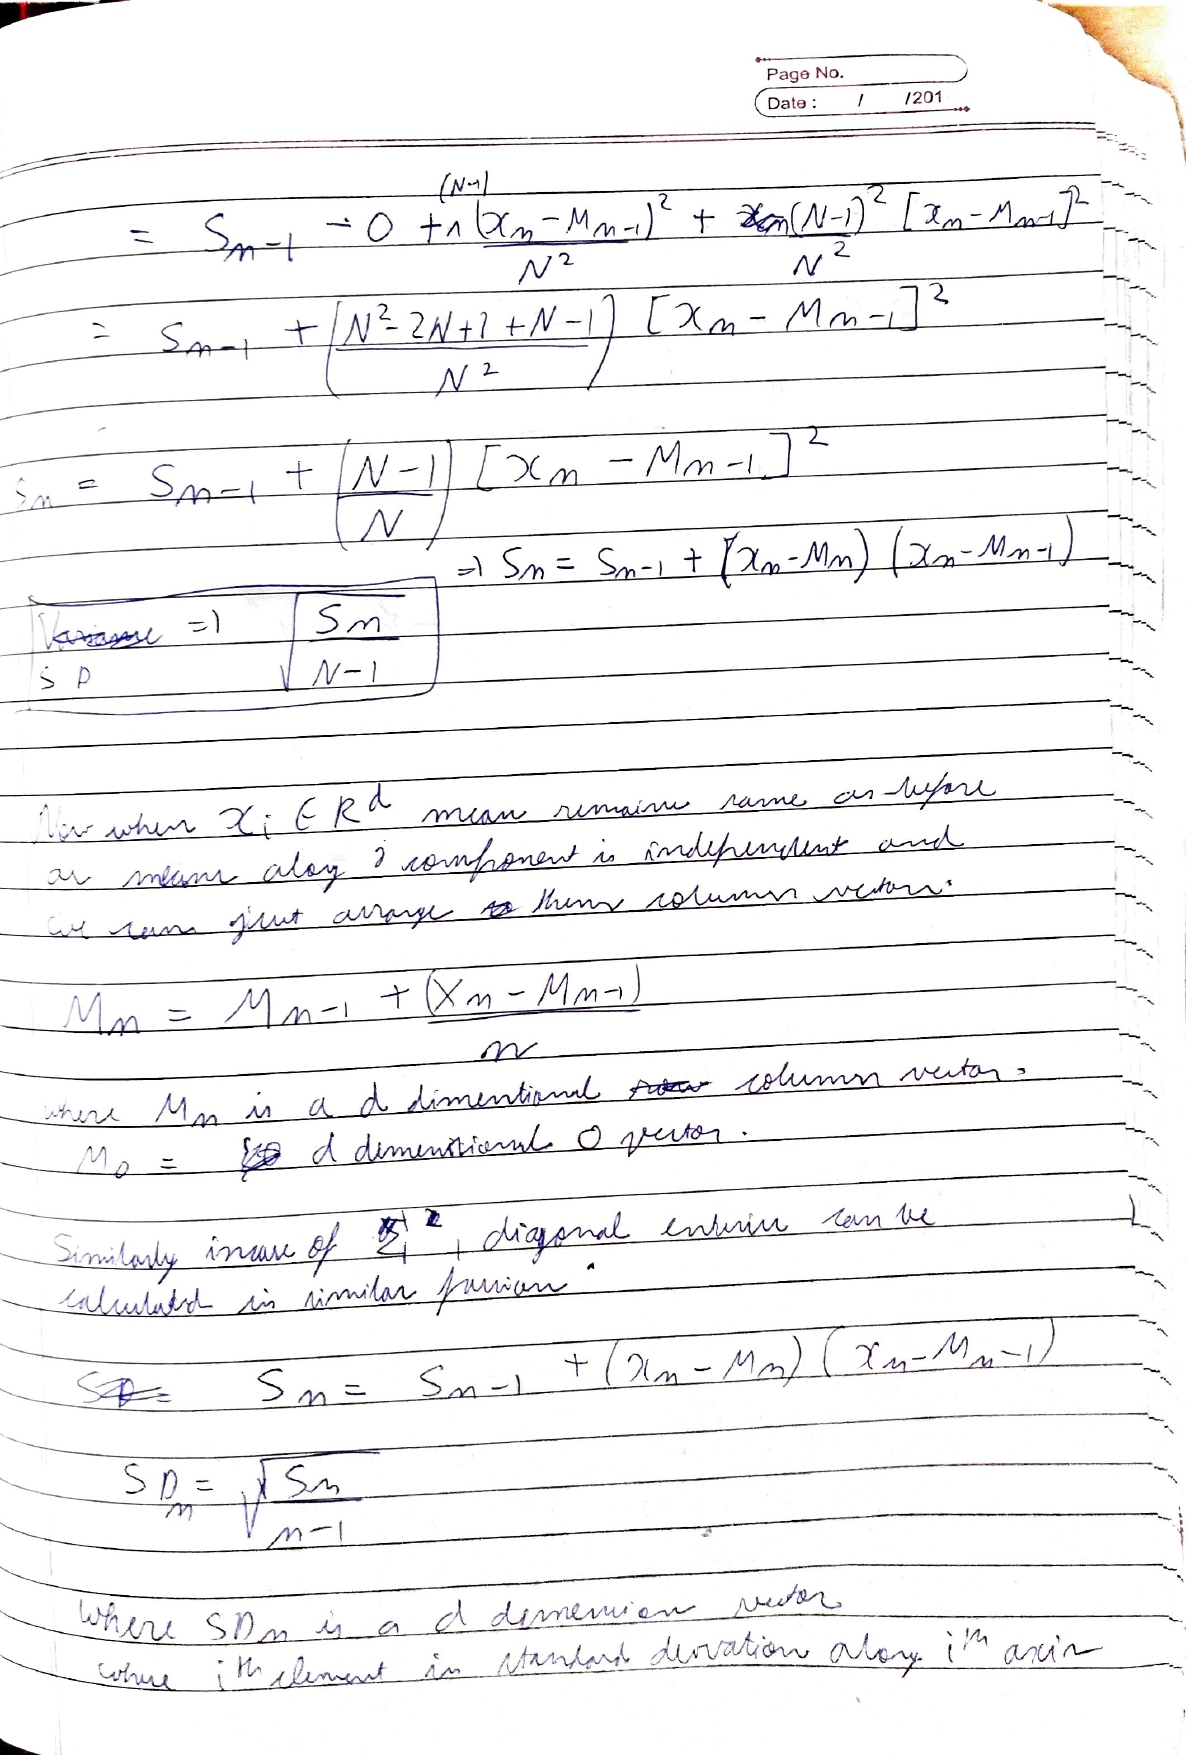 Page No.
Date : / /201
(N-1)
= S_{n-1} - 0 + 1 (x_n - M_{n-1})^2 / N^2 + (N-1)^2 [x_n - M_{n-1}]^2 / N^2
= S_{n-1} + ((N^2 - 2N + 1 + N - 1) / N^2) [x_n - M_{n-1}]^2
S_n = S_{n-1} + ((N-1) / N) [x_n - M_{n-1}]^2
=) S_n = S_{n-1} + (x_n - M_n) (x_n - M_{n-1})
Variance =) √(S_n / N-1)
S D
Now when x_i ∈ R^d mean remains same as before
as means along component is independent and
we can just arrange them column vector.
M_n = M_{n-1} + (X_n - M_{n-1}) / n
where M_n is a d dimentional row column vector.
M_0 = d demenstional 0 vector.
Similarly incase of Σ^2, diagonal enteries can be
calculated in similar fassion
SD = S_n = S_{n-1} + (x_n - M_n) (x_n - M_{n-1})
SD_n = √(S_n / n-1)
Where SD_n is a d demension vector
where i^th element is standard derivation along i^th axis